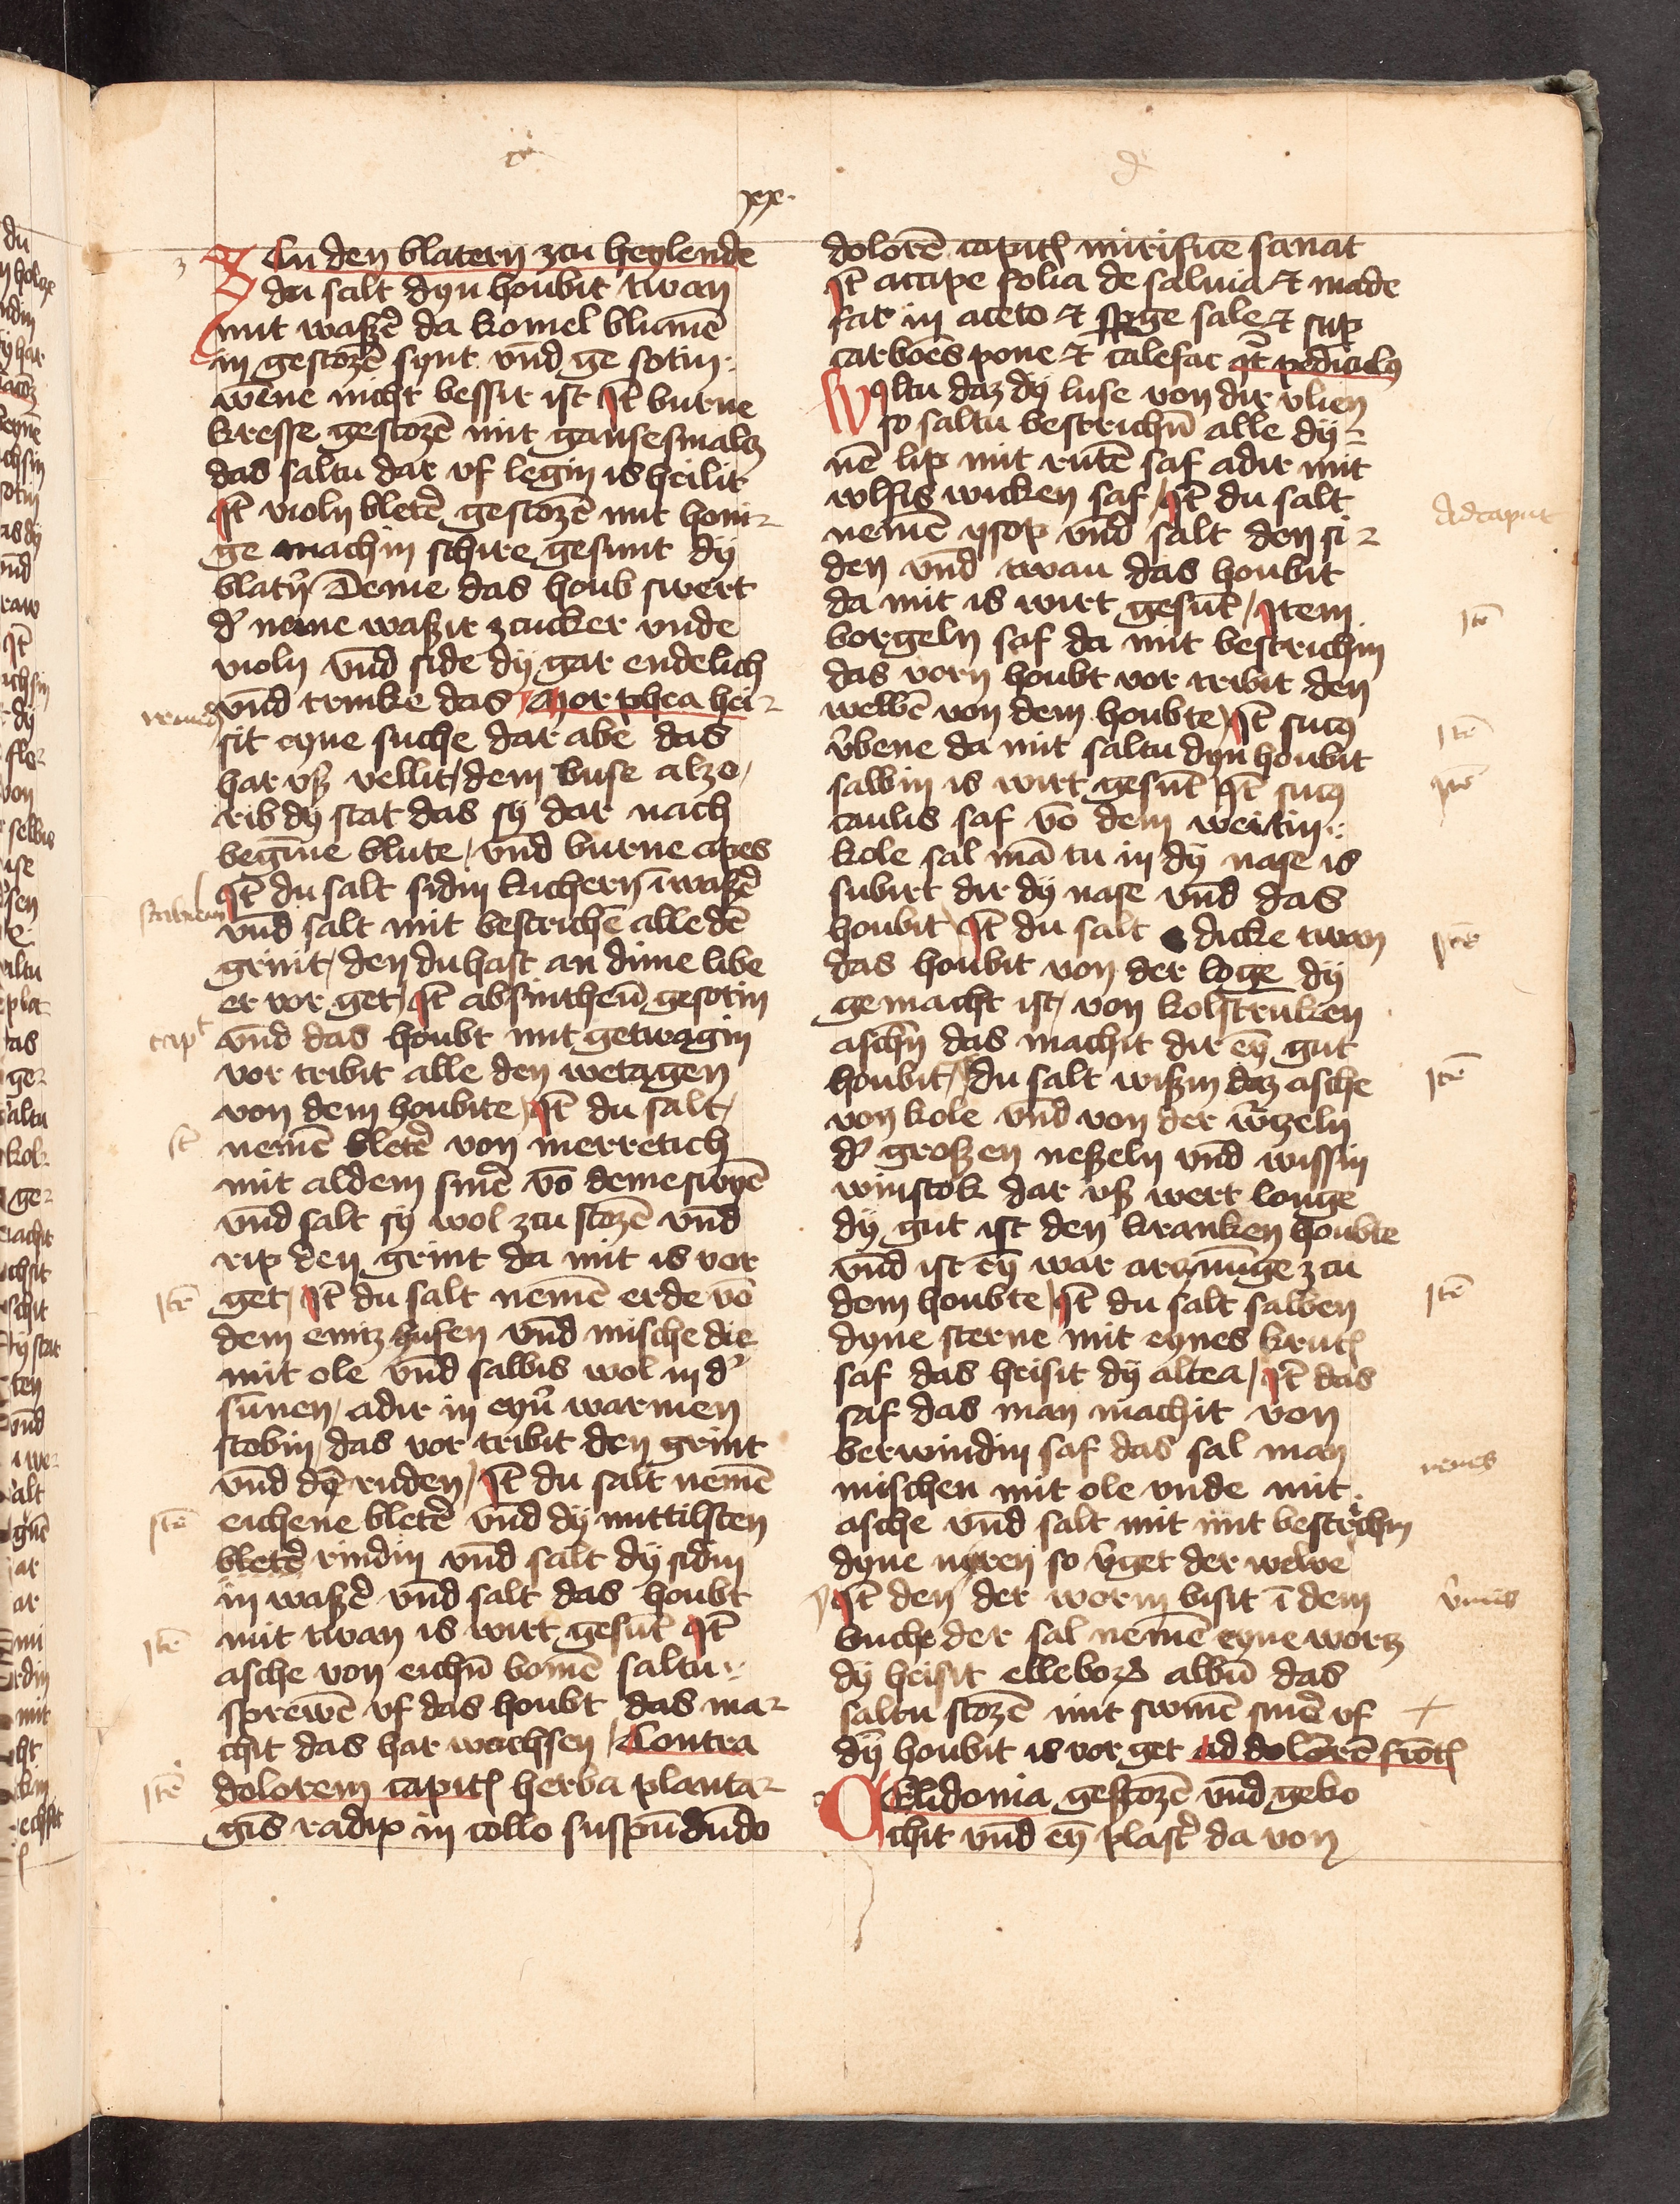 xxx.
Zcu den blatern zcu heylende
du salt dyn houbit twan
mit waßer da komel blumē
in gestozē synt vnd ge sotin
wene nicht bessir ist Jt burne
kresse gestozē mit gansesmalcz
das saltu dar vf legin is heilit
Jt violn bletē gestozē mit honi
ge machin schire gesunt dÿ
blatn̄ Deme das houb swert
dˀ neme waßir zcucker vnde
violn vnd side dÿ gar endelich
vnd trinke das Morphea hei
sit eyne suche dar abe das
har vß vellit, dem buse alzo,
rib dÿ stat das sÿ dar nach
begīne blute, vnd burne apes
Jt du salt sidin kichern ī waßē
vnd salt mit bestrichē alle dē
grint, den du hast an dime libe
er vor get, Jt absintheū gesotin
vnd das houbt mit getwagin
vor tribit alle den wetagen
von dem houbte, Jt du salt,
nemē bletē von merretich
mit aldem smē vō deme swynē
vnd salt sÿ wol zcu stozē vnd
rip den grint da mit is vor
get, Jt du salt nemē erde vō
dem emitz hufen vnd mische die
mit ole vnd salbis wol in dˀ
sunnen, adir in eyn̄ warmen
stobin, das vor tribit den grint
vnd dē ruden, Jt du salt nemē
eichene bletē vnd dÿ mittilsten
bletē rindin vnd salt dÿ sidin
in waßē vnd salt das houbt
mit twan is wirt gesūt Jt
asche von eichn̄ bomē saltu
sprewē vf das houbt das ma
chit das har wachsen, Contra
dolorem capitꝭ herba planta
gīs radix in collo suspēdūdo
dolorē capitꝭ mirifice sanat
Jt accipe folia de saluia et made
fac in aceto et sale et sup
carbōes pone et calefac pediculꝯ
Wyltu daz dÿ luse von dir vlien
so saltu bestrichn̄ alle dÿ
nē lip mit rutē saf adir mit
wlfis wicken saf, Jt du salt
nemē ysop vnd salt den si
den vnd twan das houbit
da mit is wirt gesūt, Jtem
borgeln saf da mit bestrichin
das vorn houbt vor tribit den
welbē von dem houbte, Jt sucꝯ
v̄bene da mit saltu dyn houbit
salbin is wirt gesūt Jt sucꝯ
caulis saf vō dem weitin
kole sal mā tu in dÿ nase is
subirt dir dÿ nase vnd das
houbit Jt du salt dicke twan
das houbit von der loge dÿ
gemacht ist, von kolstruken
aschn̄ das machit dir eȳ gut
houbit, du salt wißin daz asche
von kole vnd von der w̄czeln
dˀ großen neßeln vnd wissin
winstok dar vß wert louge
dÿ gut ist den kranken houbte
vnd ist eȳ war zcu
dem houbte, Jt du salt salben
dyne sterne mit eynes krutꝭ
saf das heisit dÿ altea, Jt das
saf das man machit von
berwindin saf das sal man
mischen mit ole vnde mit
asche vnd salt mit mit bestrichin
dyne nyren so v̄get der welwe
Jt den der worm bisit ī dem
buche der sal nemē eyne wortz
dÿ heisit elleborꝰ albū das
saltu stozē mit swinē smē vf
dȳ houbit is vor get ad dolorē frōtꝭ
Celidonia gestozē vnd geko
chit vnd eȳ plastˀ da von
capt
Jt
Jtē
Jtē
Jtē
Jtē
Ad caput
Jtē
Jtē
Jtē
Jtē
Jtē
Jtē
renes
v̄mes